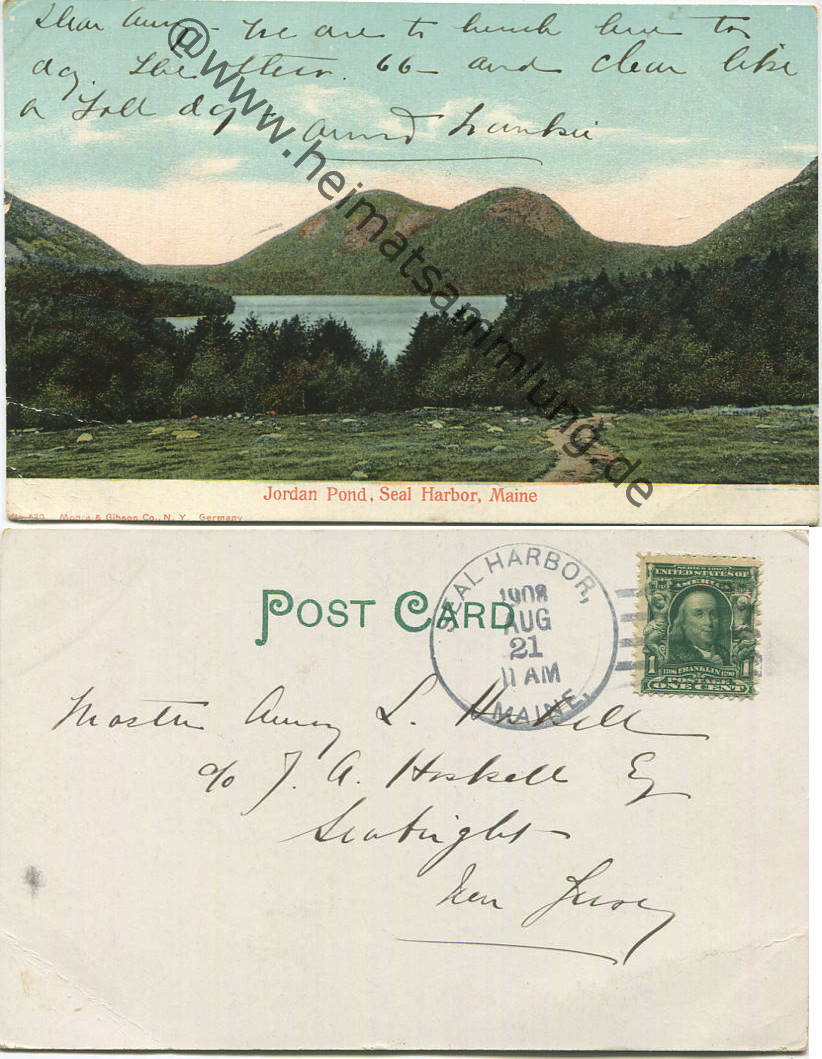 Dear Amory – We are to lunch here to
day. The ther. 66 – and clear like
a Fall day. Aunt Frankie
@www.heimatsammlung.de
Jordan Pond, Seal Harbor, Maine
No. 620 Moore & Gibson Co., N. Y. Germany
POST CARD
SEAL HARBOR,
1908
AUG
21
11 AM
MAINE.
SERIES 1902
UNITED STATES OF
AMERICA
1706 FRANKLIN 1790
POSTAGE
1 ONE CENT 1
Master Amory L. Haskell
c/o J. A. Haskell Esq
Seabright
New Jersey